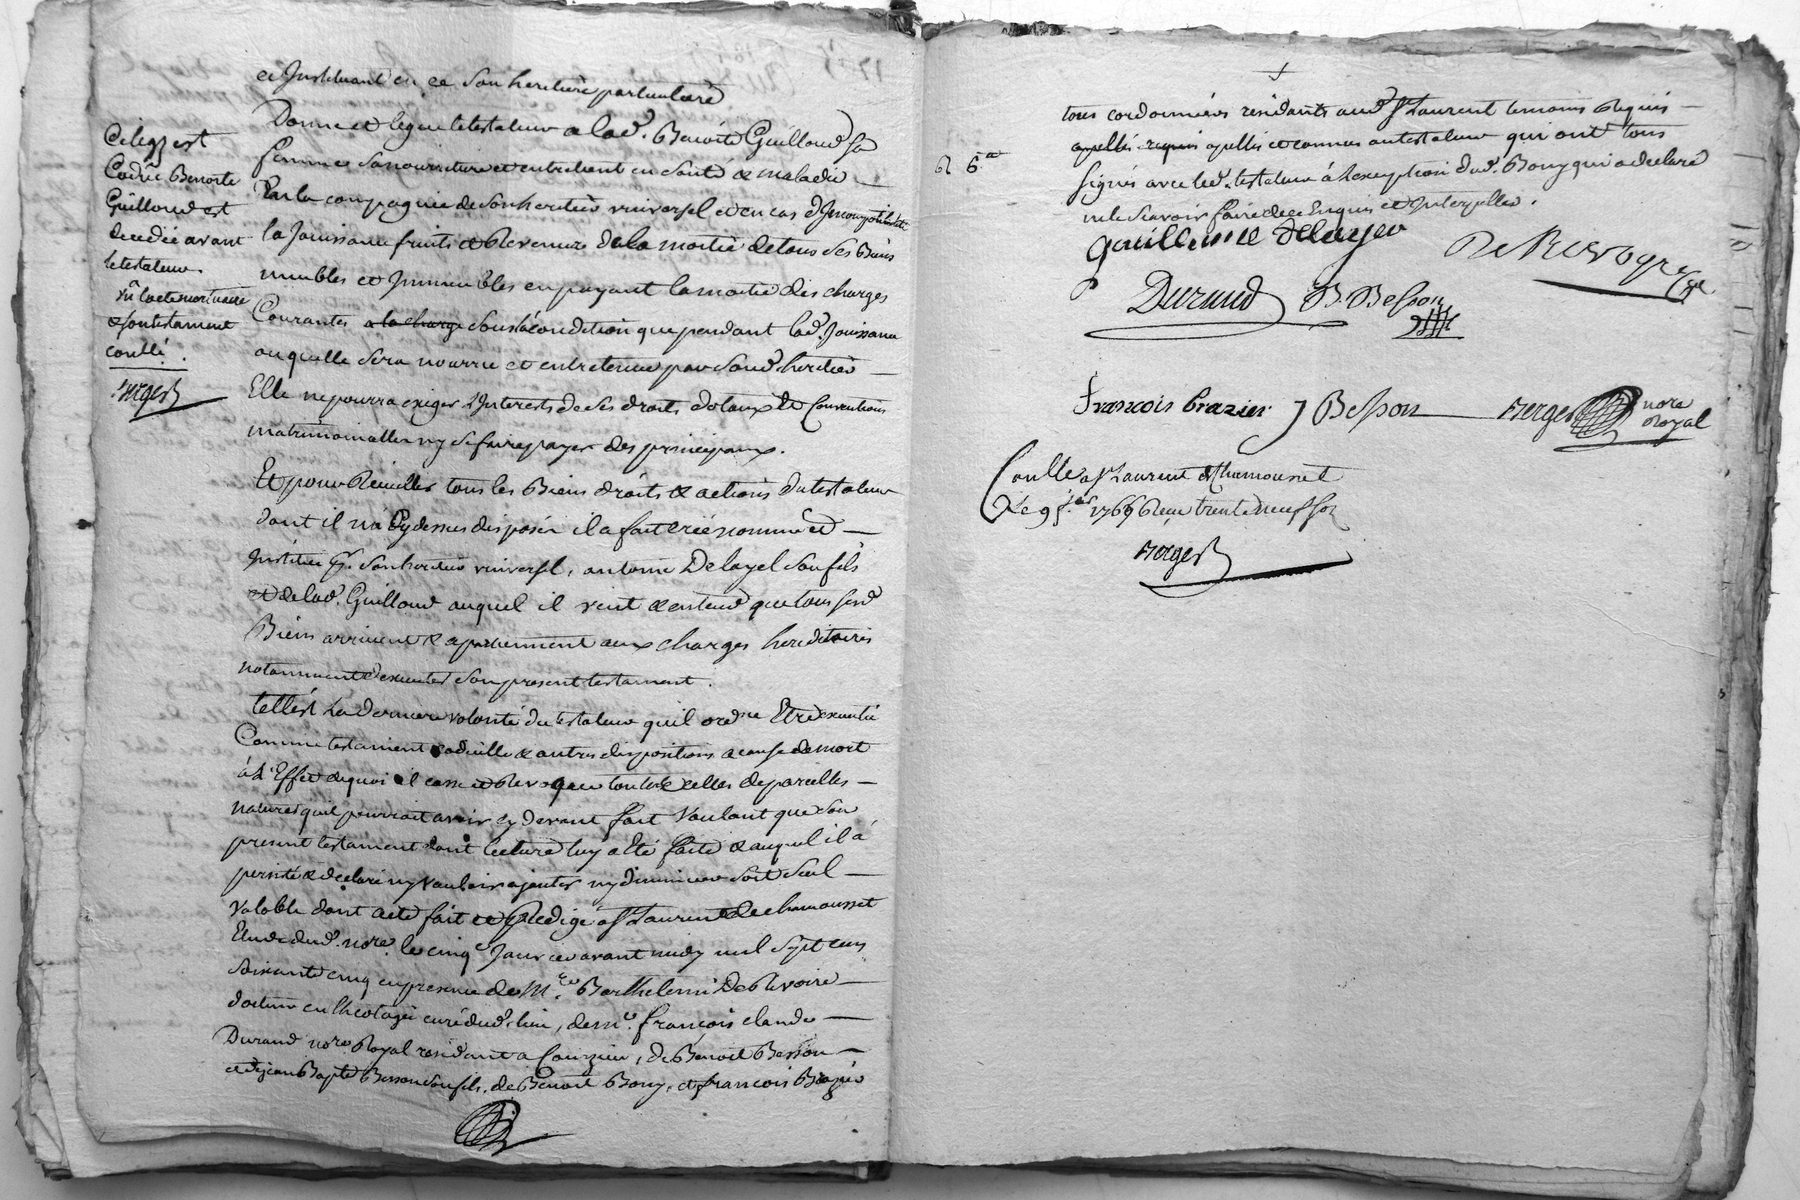 et Instituant en ce son heritiere particuliere
Donne et legue le testateur a lad. Benoite Guilloud sa
femme sa nourriture et entretient en santé & maladie
En la compagnie de son heritier universel et en cas d'Incompatibilité
la Jouissance fruits et Revenus de la moitié de tous ses Biens
meubles et Immeubles en payant la moitié des charges
Courantes a la charge sous la condition que pendant lad. Jouissance
ou qu'elle sera nourrie et entretenue par sond. heritier
Elle ne pourra exiger d'Interests de ses droits dotaux & Conventions
matrimonialles ny se faire payer des principaux.
Et pour Recuillir tous les Biens droits & actions du testateur
dont il n'a Cy dessus disposé il a fait créé nommé et
Institué pr. son heritier universel, antoine Delayel son fils
et de lad. Guilloud auquel il veut & entend que tous sesd
Biens arrivent & apartiennent aux charges hereditaires
notamment d'executer son present testament.
telle est La derniere volonté du testateur qu'il ordne Etre executée
Comme testament codicille & autres dispositions a cause de mort
à L'Effet de quoi il casse et Revoque toutes celles de pareilles
natures qu'il pourroit avoir cy devant fait Voulant que son
present testament dont lecture luy a Eté faite & auquel il à
persisté & declaré ny vouloir ajouter ny diminuer soit seul
valable dont acte fait et Redigé a St Laurent de chamousset
Etude dud. nore. le cinqe Janvier avant midy mil sept cens
soixante cinq en presence de Mre. Barthelemi De Rivoire
docteur en theologie curé dud. lieu, de me. françois claude
Durand nore. Royal residant a Courzieu, de Benoit Besson
et de jean Bapte Besson son fils, de Benoit Bony, et françois Brazier
Ce legs est
Caduc Benoite
Guilloud est
decedée avant
le testateur
vû l'acte mortuaire
& son testament
contlé.
Verger
6 6.e
tous cordonniers residants aud St Laurent temoins Requis
appellés requis apellés et connus au testateur qui ont tous
signés avec led. testateur à L'exception dud. Bony qui a declaré
ne le scavoir faire de ce Enquis et Interpellés.
guillaume delayer
De Rivoyre
Curé
Durand B. Besson
François brazier J Besson Verger nore
Royal
Contlle a St Laurent de Chamousset
Le 9 jer 1765 Reçu trente neuf sols
Verger